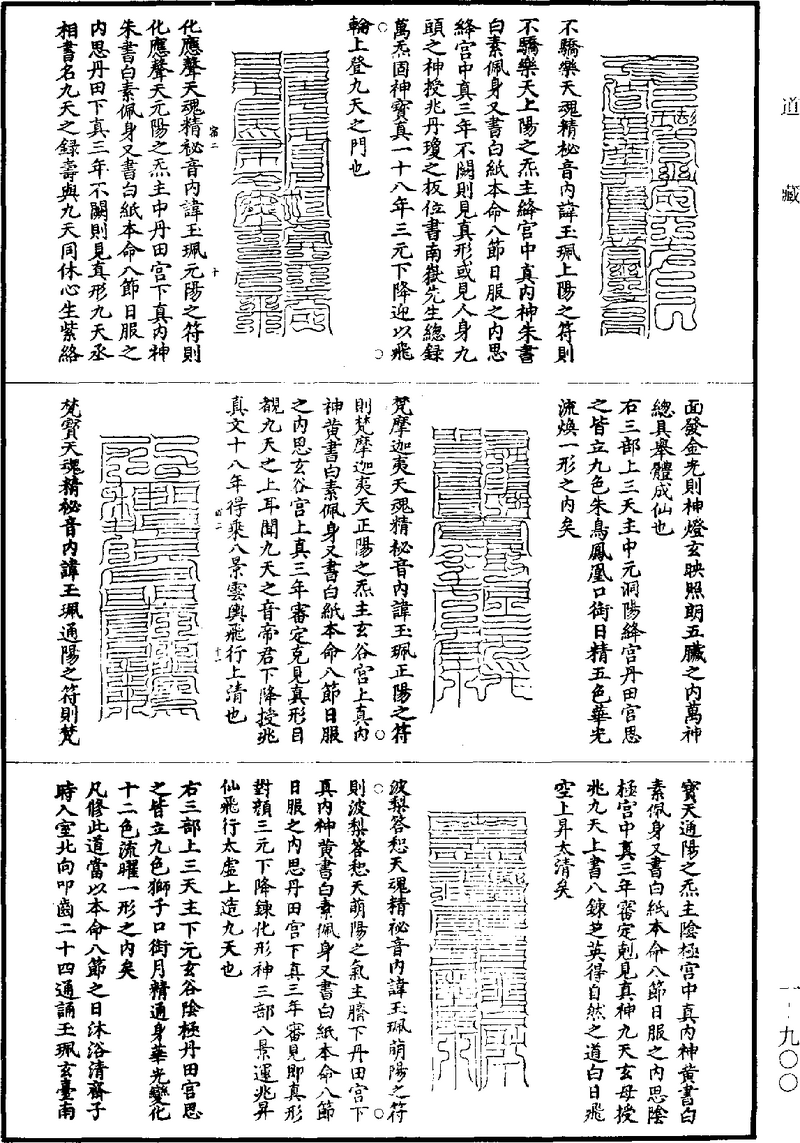 道藏
不驕樂天魂精祕音內諱玉珮上陽之符則
不驕樂天上陽之炁主絳宮中真內神朱書
白素佩身又書白紙本命八節日服之內思
絳宮中真三年不闕則見真形或見人身九
頭之神授兆丹瓊之板位書南嶽先生總錄
萬炁固神寶真一十八年三元下降迎以飛
輪上登九天之門也
化應聲天魂精祕音內諱玉珮元陽之符則
化應聲天元陽之炁主中丹田宮下真內神
朱書白素佩身又書白紙本命八節日服之
內思丹田下真三年不闕則見真形九天丞
相書名九天之錄壽與九天同休心生紫絡
面發金光則神燈玄映照朗五臟之內萬神
總具舉體成仙也
右三部上三天主中元洞陽絳宮丹田宮思
之皆立九色朱鳥鳳凰口銜日精五色華光
流煥一形之內矣
梵摩迦夷天魂精祕音內諱玉珮正陽之符
則梵摩迦夷天正陽之炁主玄谷宮上真內
神黃書白素佩身又書白紙本命八節日服
之內思玄谷宮上真三年審定克見真形目
覩九天之上耳聞九天之音帝君下降授兆
真文十八年得乘八景雲輿飛行上清也
梵寶天魂精祕音內諱玉珮通陽之符則梵
寶天通陽之炁主陰極宮中真內神黃書白
素佩身又書白紙本命八節日服之內思陰
極宮中真三年審定剋見真神九天玄母授
兆九天上書八鍊芝英得自然之道白日飛
空上昇太清矣
波梨答惒天魂精祕音內諱玉珮萠陽之符
則波梨答惒天萠陽之氣主臍下丹田宮下
真內神黃書白素佩身又書白紙本命八節
日服之內思丹田宮下真三年審見即真形
對顏三元下降鍊化形神三部八景運兆昇
仙飛行太虛上造九天也
右三部上三天主下元玄谷陰極丹田宮思
之皆立九色獅子口銜月精通身華光變化
十二色流曜一形之內矣
凡修此道當以本命八節之日沐浴清齋子
時入室北向叩齒二十四通誦玉珮玄臺南
一-九〇〇